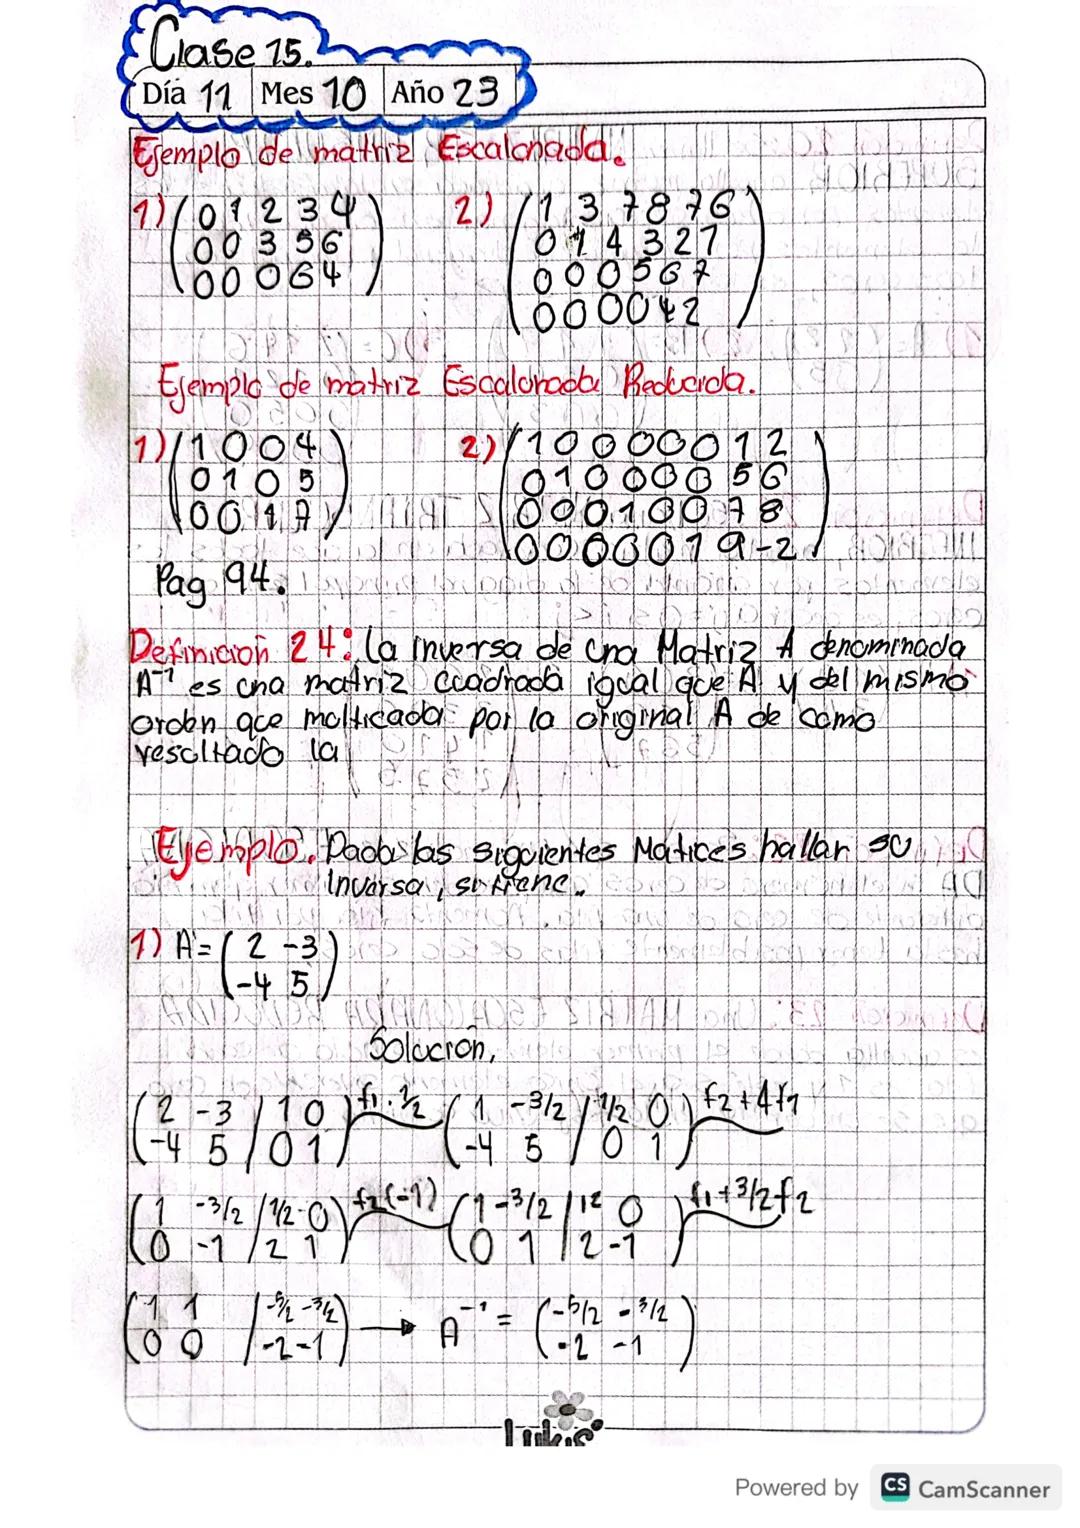 Clase 15.
Día 11 Mes 10 Año 23
Ejemplo de matriz Escalonada.
1) ( 0 1 2 3 4 ) 2) ( 1 3 7 8 7 6 )
0 0 3 5 6 0 1 4 3 2 1
0 0 0 6 4 0 0 0 5 6 7
0 0 0 0 4 2
Ejemplo de matriz Escalonada Reducida.
1) ( 1 0 0 4 ) 2) ( 1 0 0 0 0 0 1 2 )
0 1 0 5 0 1 0 0 0 0 5 6
0 0 1 7 0 0 0 1 0 0 7 8
0 0 0 0 0 1 9 -2
Pag 94.
Definición 24: La inversa de una Matriz A denominada
A⁻¹ es una matriz cuadrada igual que A y del mismo
orden que multicada por la original A de como
resultado la
Ejemplo. Dada las siguientes Matices hallar su
inversa, si tiene.
1) A = ( 2 -3 )
( -4 5 )
Solución,
( 2 -3 / 1 0 ) f1 · 1/2 ( 1 -3/2 / 1/2 0 ) f2 + 4f1
( -4 5 / 0 1 ) ( -4 5 / 0 1 )
( 1 -3/2 / 1/2 0 ) f2(-1) ( 1 -3/2 | 12 0 ) f1 + 3/2 f2
( 0 -1 / 2 1 ) ( 0 1 | 2 -1 )
( 1 1 | -5/2 -3/2 ) → A⁻¹ = ( -5/2 -3/2 )
( 0 0 | -2 -1 ) ( -2 -1 )
Lukis
Powered by CS CamScanner